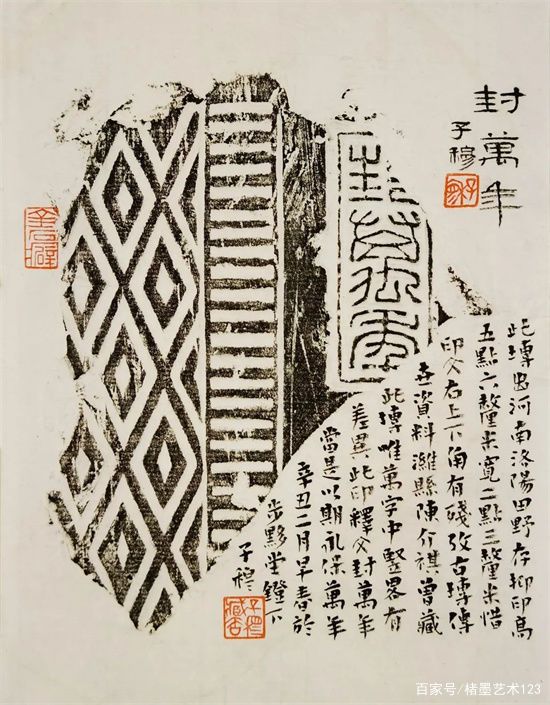 封萬年
子穆
封萬年
此塼出河南洛陽田野存抑印高
五點六釐米寬二點三釐米惜
印文右上下角有殘攷古塼傳
世資料濰縣陳介祺曾藏
此塼唯萬字中竪畧有
差異此印釋文封萬年
當是以期永保萬年
辛丑二月早春於
步黟堂鐙下
子穆
金石癖
百家号/楮墨艺术123